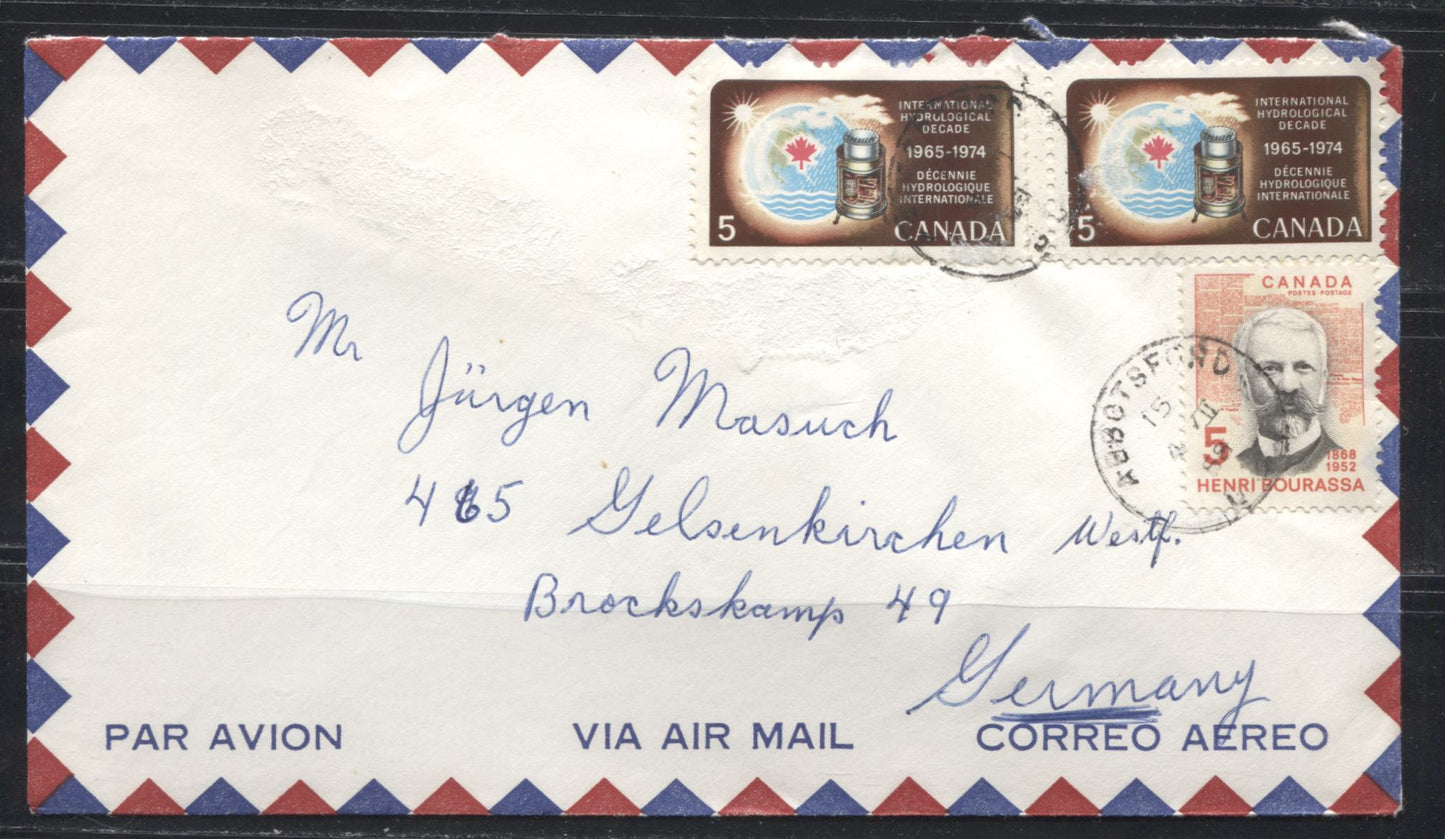 INTERNATIONAL
HYDROLOGICAL
DECADE
1965-1974
DÉCENNIE
HYDROLOGIQUE
INTERNATIONALE
5 CANADA
INTERNATIONAL
HYDROLOGICAL
DECADE
1965-1974
DÉCENNIE
HYDROLOGIQUE
INTERNATIONALE
5 CANADA
CANADA
POSTES POSTAGE
5
1868
1952
HENRI BOURASSA
ABBOTSFORD
15
VII
Mr
Jürgen Masuch
465 Gelsenkirchen Westf.
Brockskamp 49
Germany
PAR AVION VIA AIR MAIL CORREO AEREO